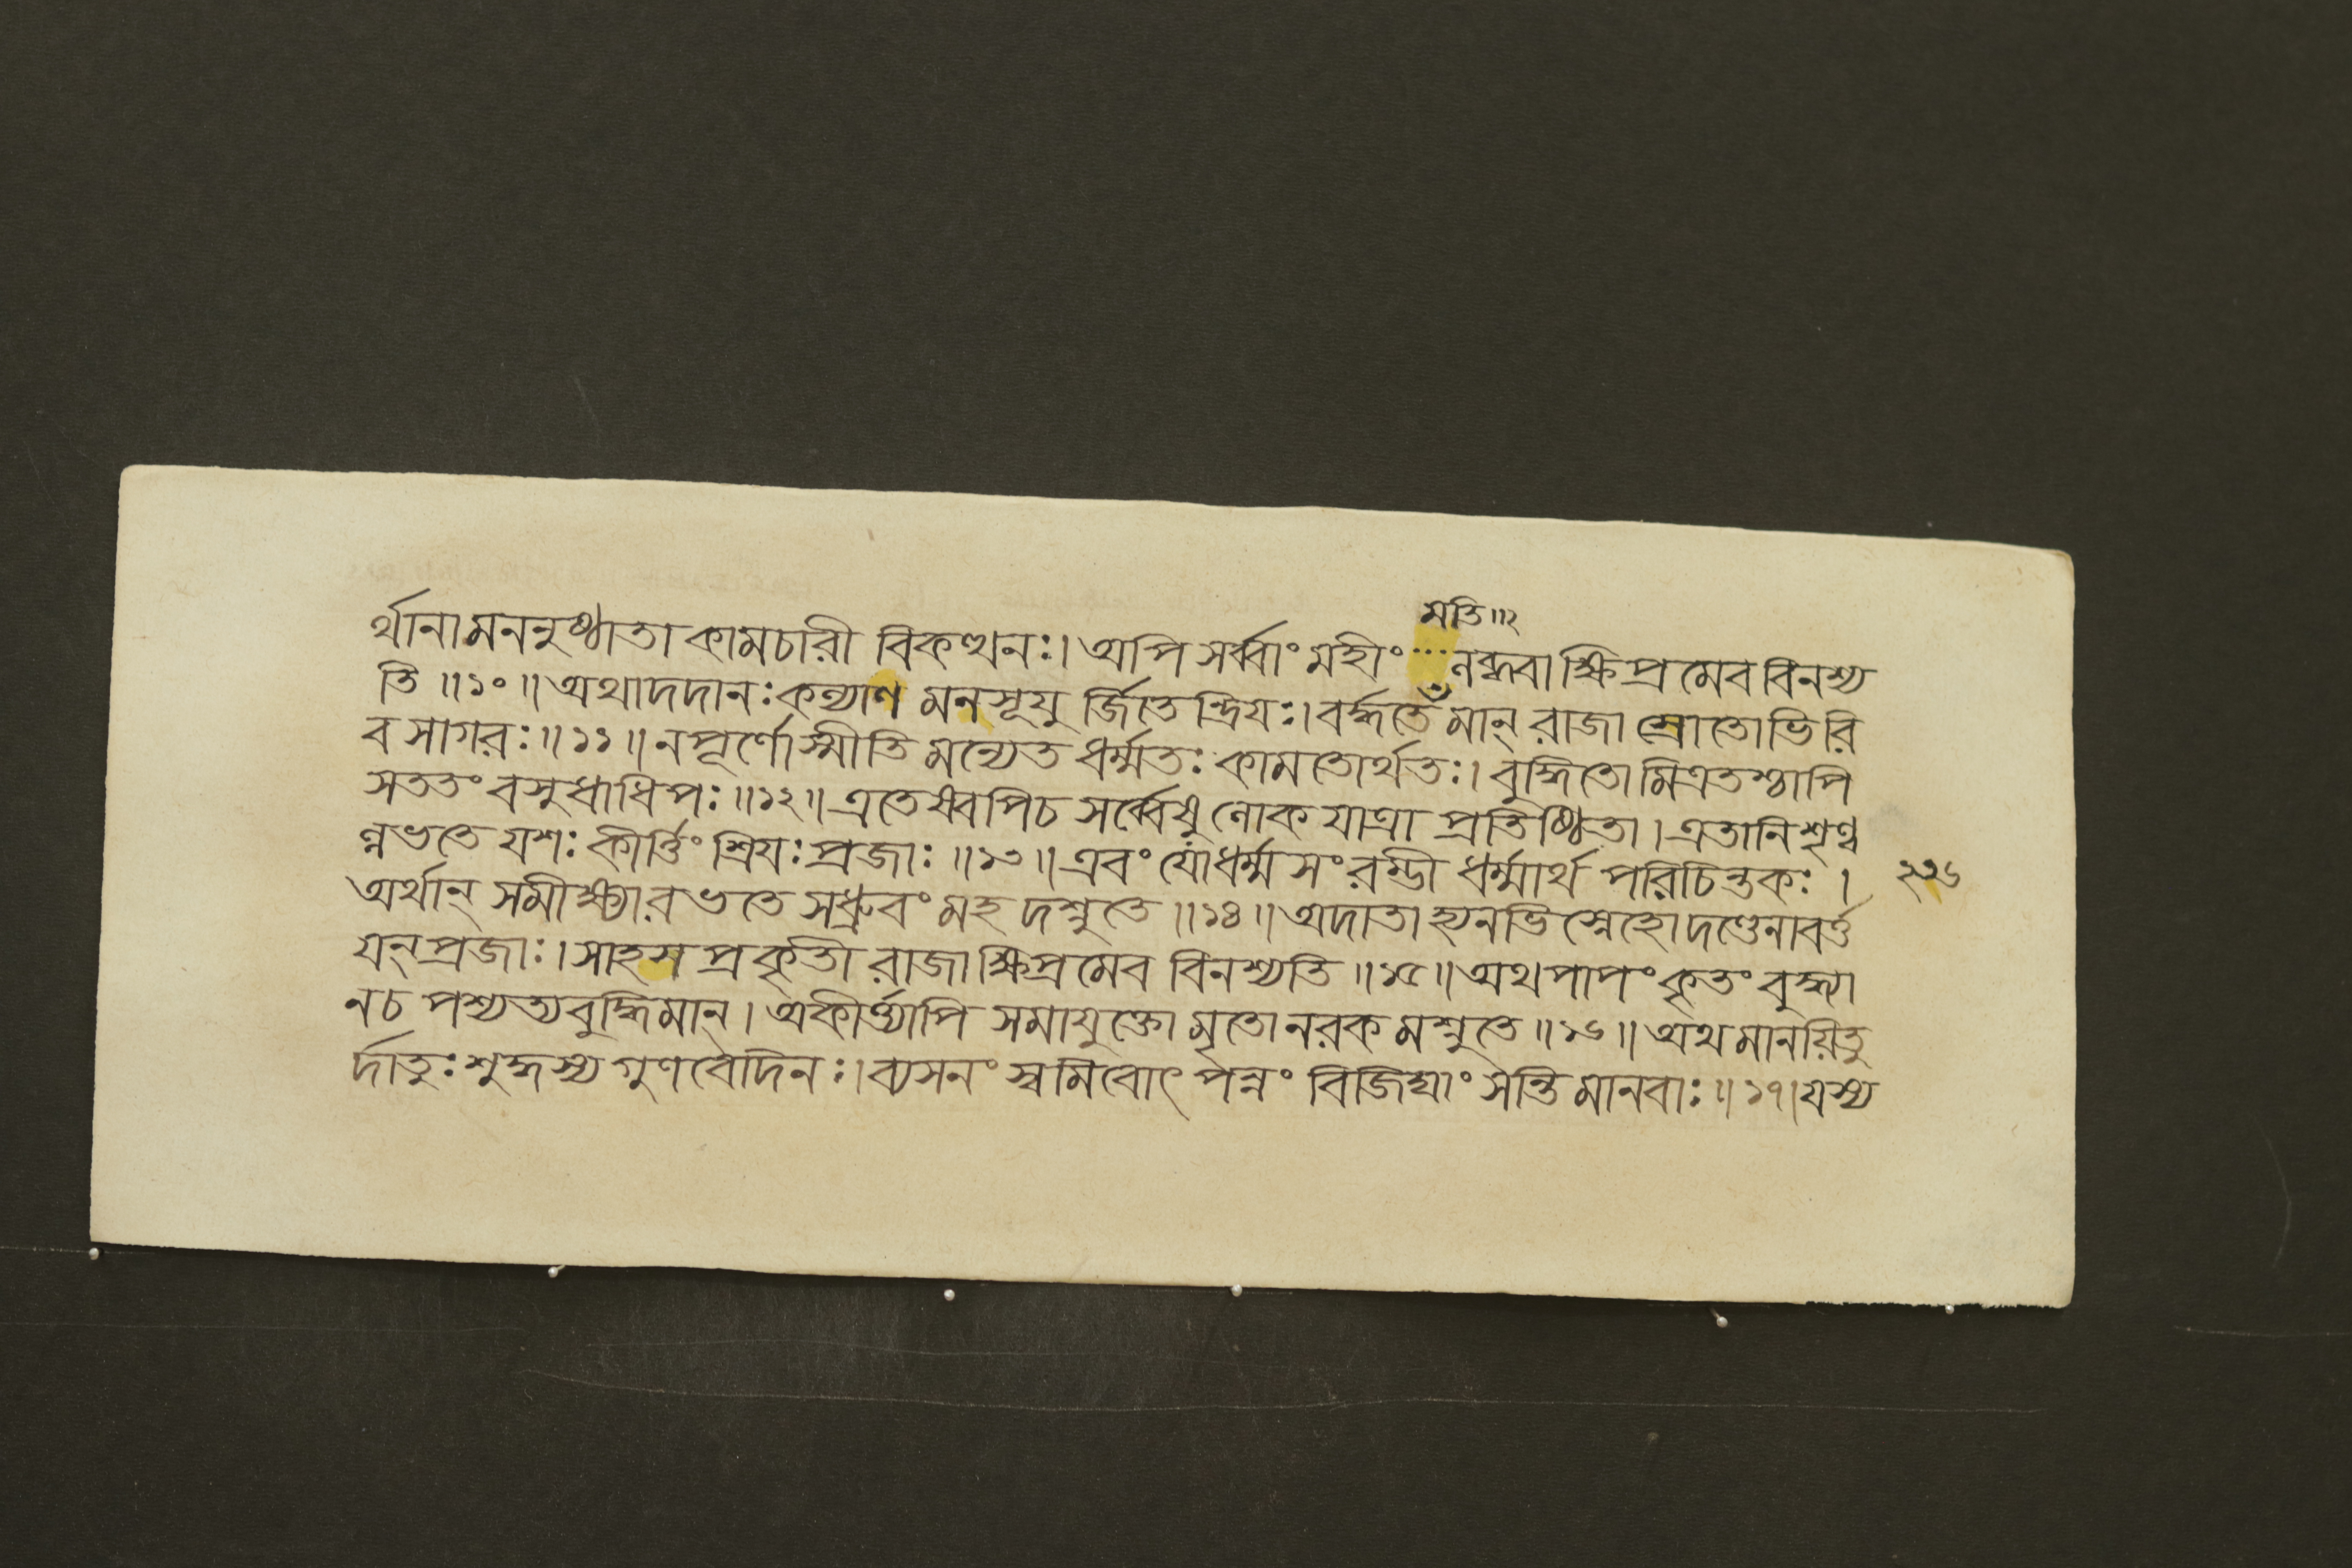 মতি॥২
র্থানামননুষ্ঠাতা কামচারী বিকত্থনঃ। অপি সর্ব্বাং মহীং ... নব্ধবা ক্ষিপ্রমেব বিনশ্য
তি ॥১০॥ অথাদদানঃ কল্যাণ মনসূযু র্জিতেন্দ্রিযঃ। বর্দ্ধতে মান্ রাজা স্রোতোভিরি
ব সাগরঃ ॥১১॥ ন পূর্ণোস্মীতি মন্যেত ধর্ম্মতঃ কামতোর্থতঃ। বুদ্ধিতো মিত্রতশ্চাপি
সততং বসুধাধিপঃ ॥১২॥ এতেষ্বেবপিচ সর্ব্বেষু লোক যাত্রা প্রতিষ্ঠিতা। এতানি শৃণ্ব
ন্নভতে যশঃ কীর্ত্তিং শ্রিযঃ প্রজাঃ ॥১৩॥ এবং যো ধর্ম্ম সংরম্ভী ধর্ম্মার্থ পরিচিন্তকঃ।
অর্থান্ সমীক্ষ্যারভতে সধ্রুবং মহদশ্নুতে ॥১৪॥ অদাতা হ্যনভিস্নেহো দণ্ডেনাবর্ত্ত
যন্ প্রজাঃ। সাহস প্রকৃতী রাজা ক্ষিপ্রমেব বিনশ্যতি ॥১৫॥ অথ পাপং কৃতং বুদ্ধ্যা
নচ পশ্যত্যবুদ্ধিমান্। অকীর্ত্ত্যাপি সমাযুক্তো মৃতো নরকমশ্নুতে ॥১৬॥ অথ মানয়িতু
র্দাতুঃ শুদ্ধস্য গুণবেদিনঃ। ব্যসনং স্বমিবোৎপন্নং বিজিঘাংসন্তি মানবাঃ ॥১৭। যস্য
২২৬